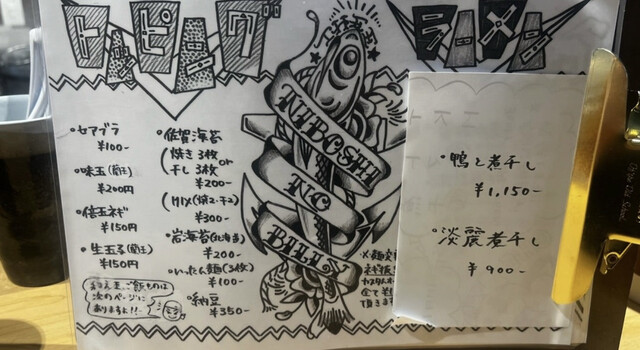 トッピング
・セアブラ
¥100-
・味玉(蘭王)
¥200円
・倍玉ネギ
¥150円
・生玉子(蘭王)
¥150円
まぜそば、ご飯ものは
次のページに
ありますよ!!
・佐賀海苔
(焼き3枚or
干し3枚
¥200-
(MIX(焼2・干2)
¥300-
・岩海苔(北海道)
¥200-
・いったん麺(3枚)
¥100-
・納豆
¥350-
NIBOSHI
NC
BILLY
ラーメン
・鴨と煮干し
¥1,150-
・淡麗煮干し
¥900-